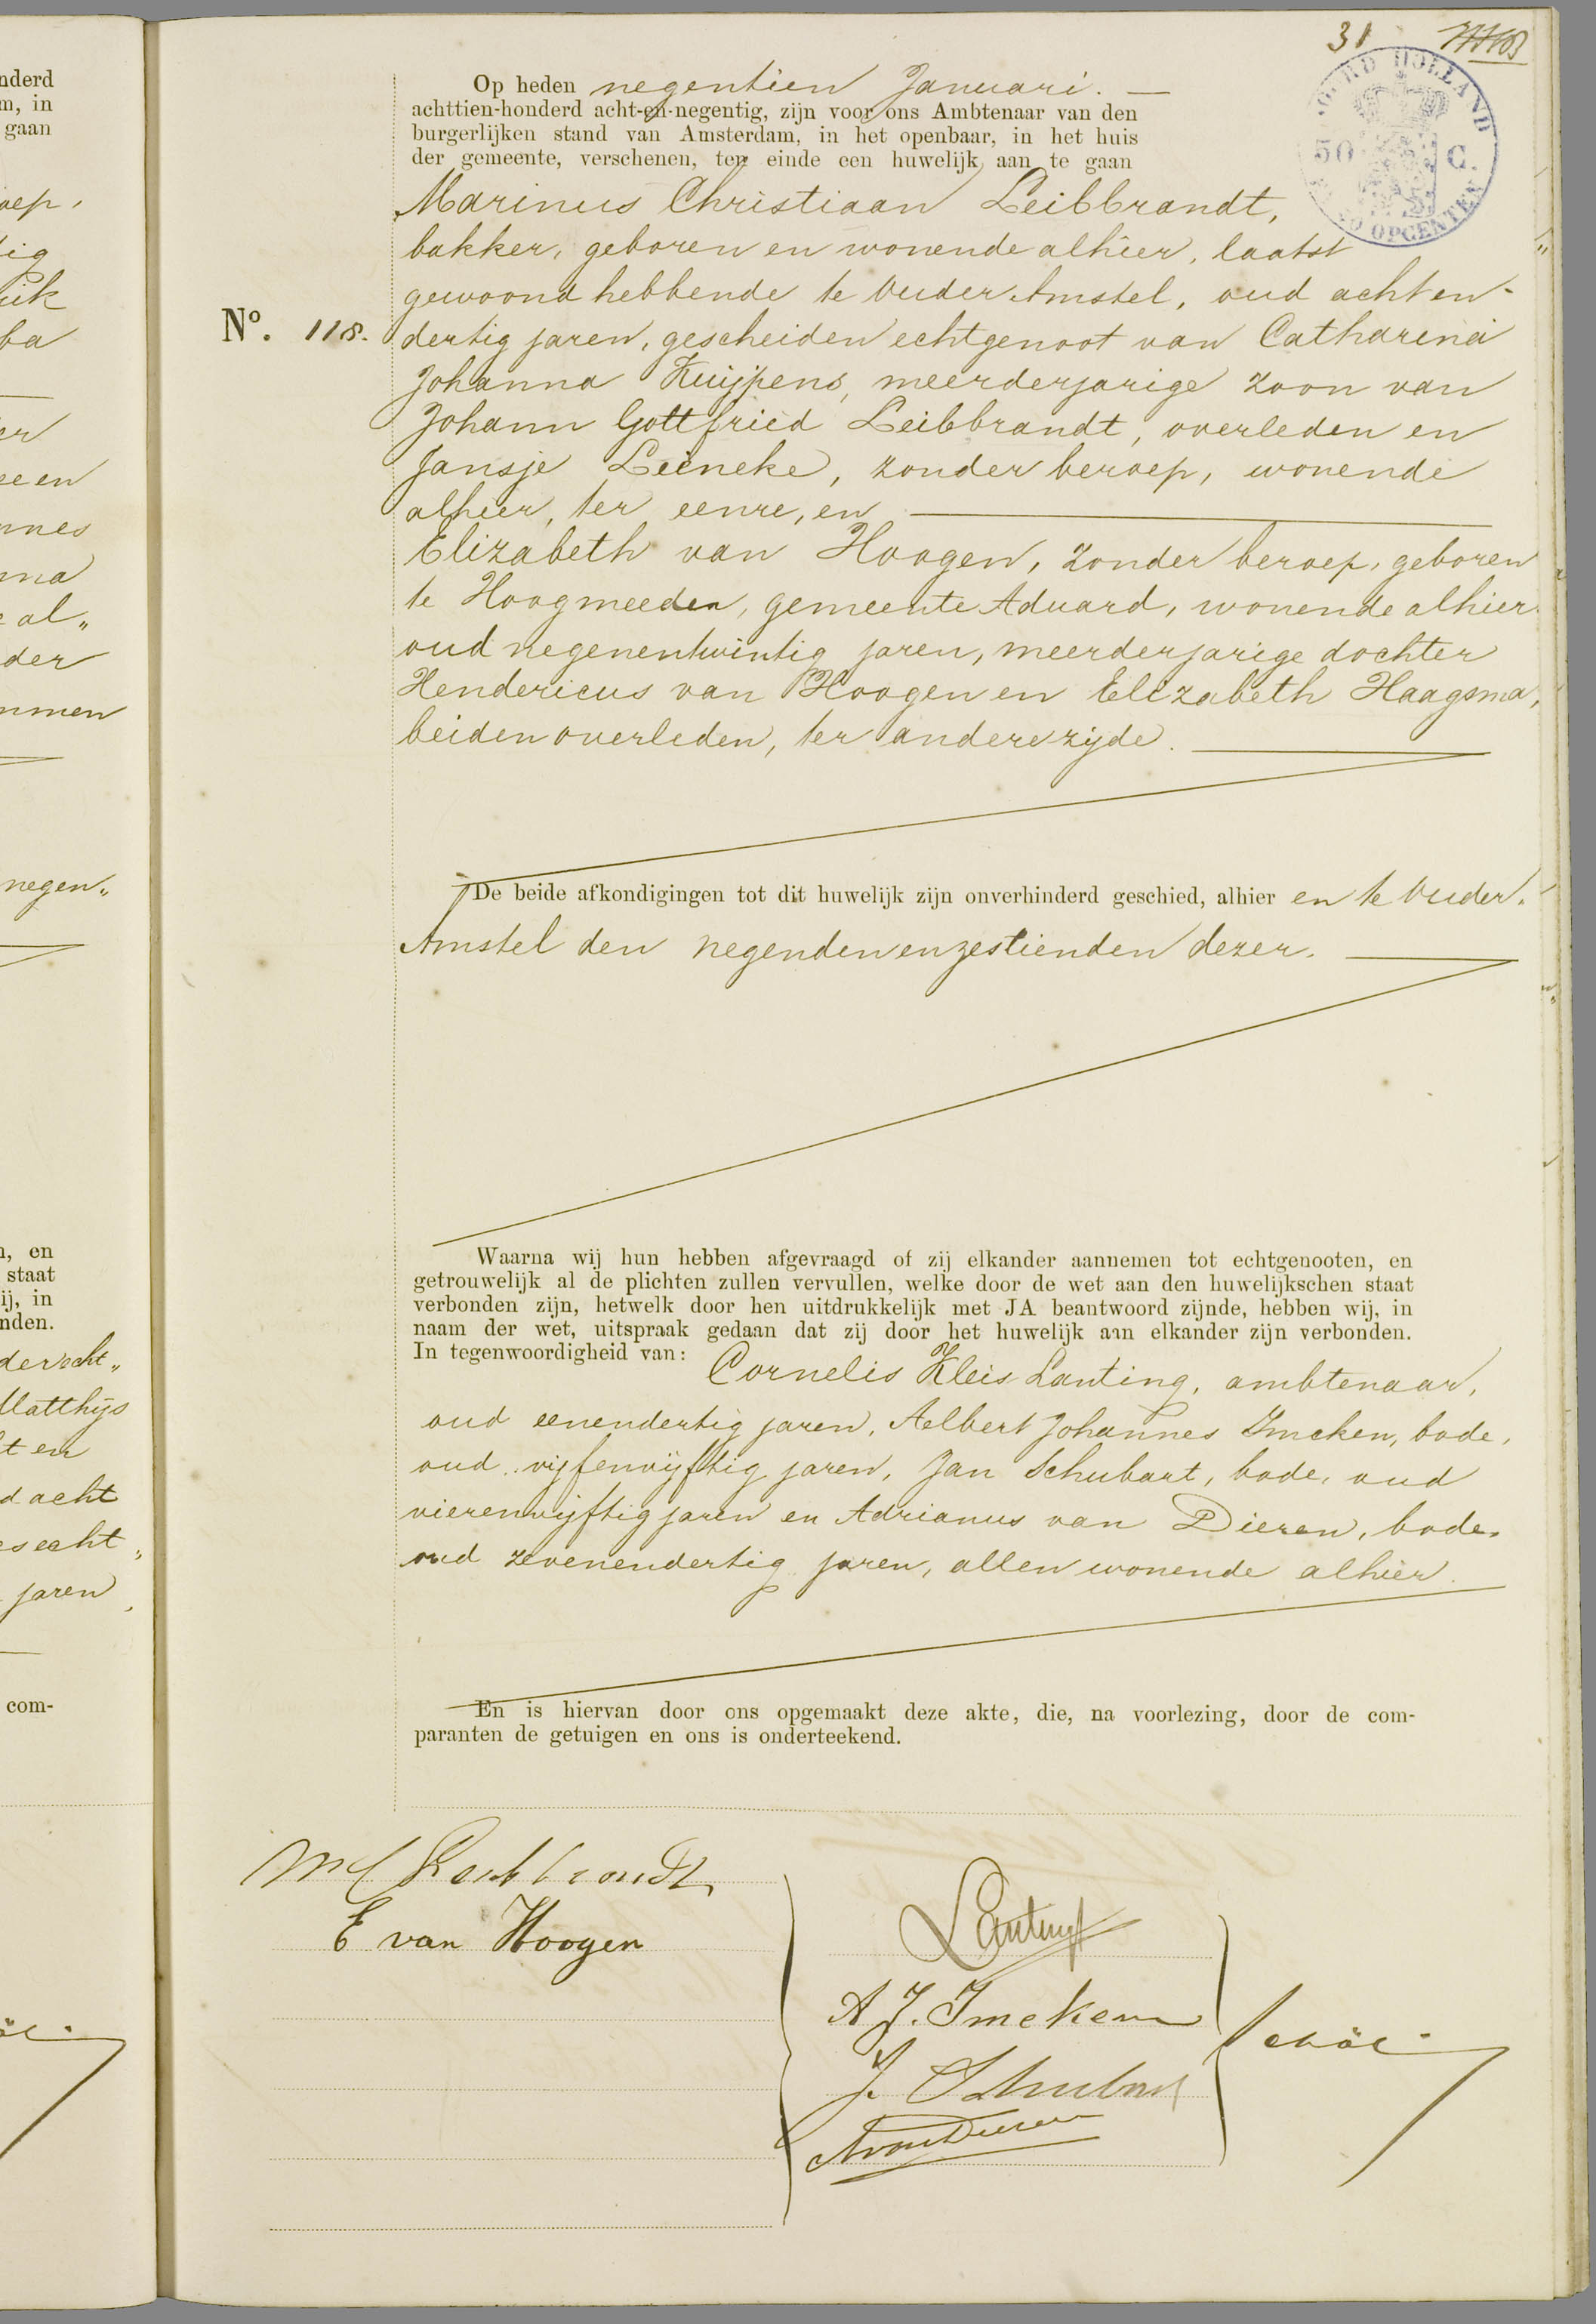 31
NOORD HOLLAND
50 C.
OPCENTEN
Op heden negentien Januari. —
achttien-honderd acht-en-negentig, zijn voor ons Ambtenaar van den
burgerlijken stand van Amsterdam, in het openbaar, in het huis
der gemeente, verschenen, ten einde een huwelijk aan te gaan
Marinus Christiaan Leibbrandt,
bakker, geboren en wonende alhier, laatst
gewoond hebbende te Ouder Amstel, oud achten-
No. 118.
dertig jaren, gescheiden echtgenoot van Catharina
Johanna Kuijpens, meerderjarige zoon van
Johann Gottfried Leibbrandt, overleden en
Jansje Leineke, zonder beroep, wonende
alhier, ter eenre, en
Elizabeth van Hoogen, zonder beroep, geboren
te Hoogmeeden, gemeente Aduard, wonende alhier
oud negenentwintig jaren, meerderjarige dochter
Hendericus van Hoogen en Elizabeth Haagsma,
beiden overleden, ter andere zijde.
De beide afkondigingen tot dit huwelijk zijn onverhinderd geschied, alhier en te Ouder.
Amstel den negenden en zestienden dezer.
Waarna wij hun hebben afgevraagd of zij elkander aannemen tot echtgenooten, en
getrouwelijk al de plichten zullen vervullen, welke door de wet aan den huwelijkschen staat
verbonden zijn, hetwelk door hen uitdrukkelijk met JA beantwoord zijnde, hebben wij, in
naam der wet, uitspraak gedaan dat zij door het huwelijk aan elkander zijn verbonden.
In tegenwoordigheid van: Cornelis Kleis Lanting, ambtenaar,
oud eenendertig jaren, Aelbert Johannes Imeken, bode,
oud vijfenvijftig jaren, Jan Schubart, bode, oud
vierenvijftig jaren en Adrianus van Dieren, bode,
oud zevenendertig jaren, allen wonende alhier.
En is hiervan door ons opgemaakt deze akte, die, na voorlezing, door de com-
paranten de getuigen en ons is onderteekend.
M C Leibbrandt
E van Hoogen
Lanting
A J. Imeken
J. Schubart
A van Dieren
nderd
m, in
gaan
oep,
tig
ba
een
nnes
ma
al„
der
mmen
negen„
n, en
staat
ij, in
nden.
der echt„
Matthijs
t en
d acht
es echt„
jaren,
com-